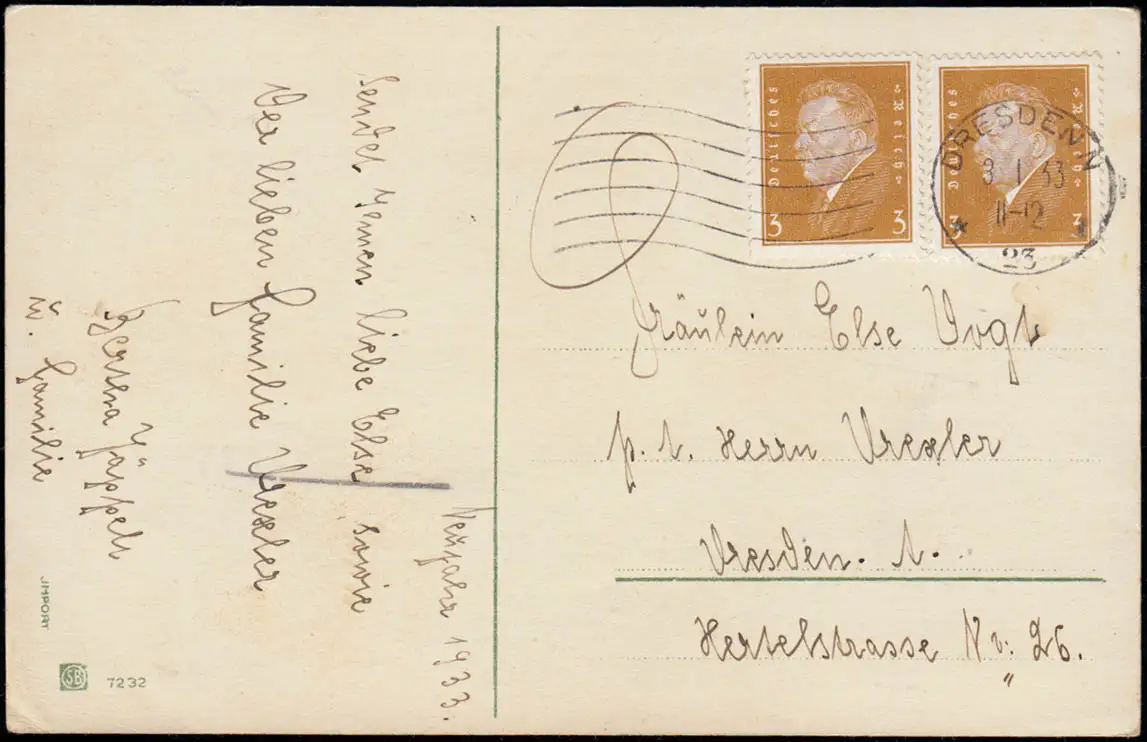 Neujahr 1933.
Sendet Ihnen liebe Else, sowie
Der lieben Familie Drexler
Bertha Jäppelt
u. Familie
Deutsches Reich
3 3
Deutsches Reich
3 3
DRESDEN N
3 1 33
11-12
23
Fräulein Else Vogt
p. A. Herrn Drexler
Dresden. A.
Hertelstrasse Nr: 26.
JMPORT
SB
7232